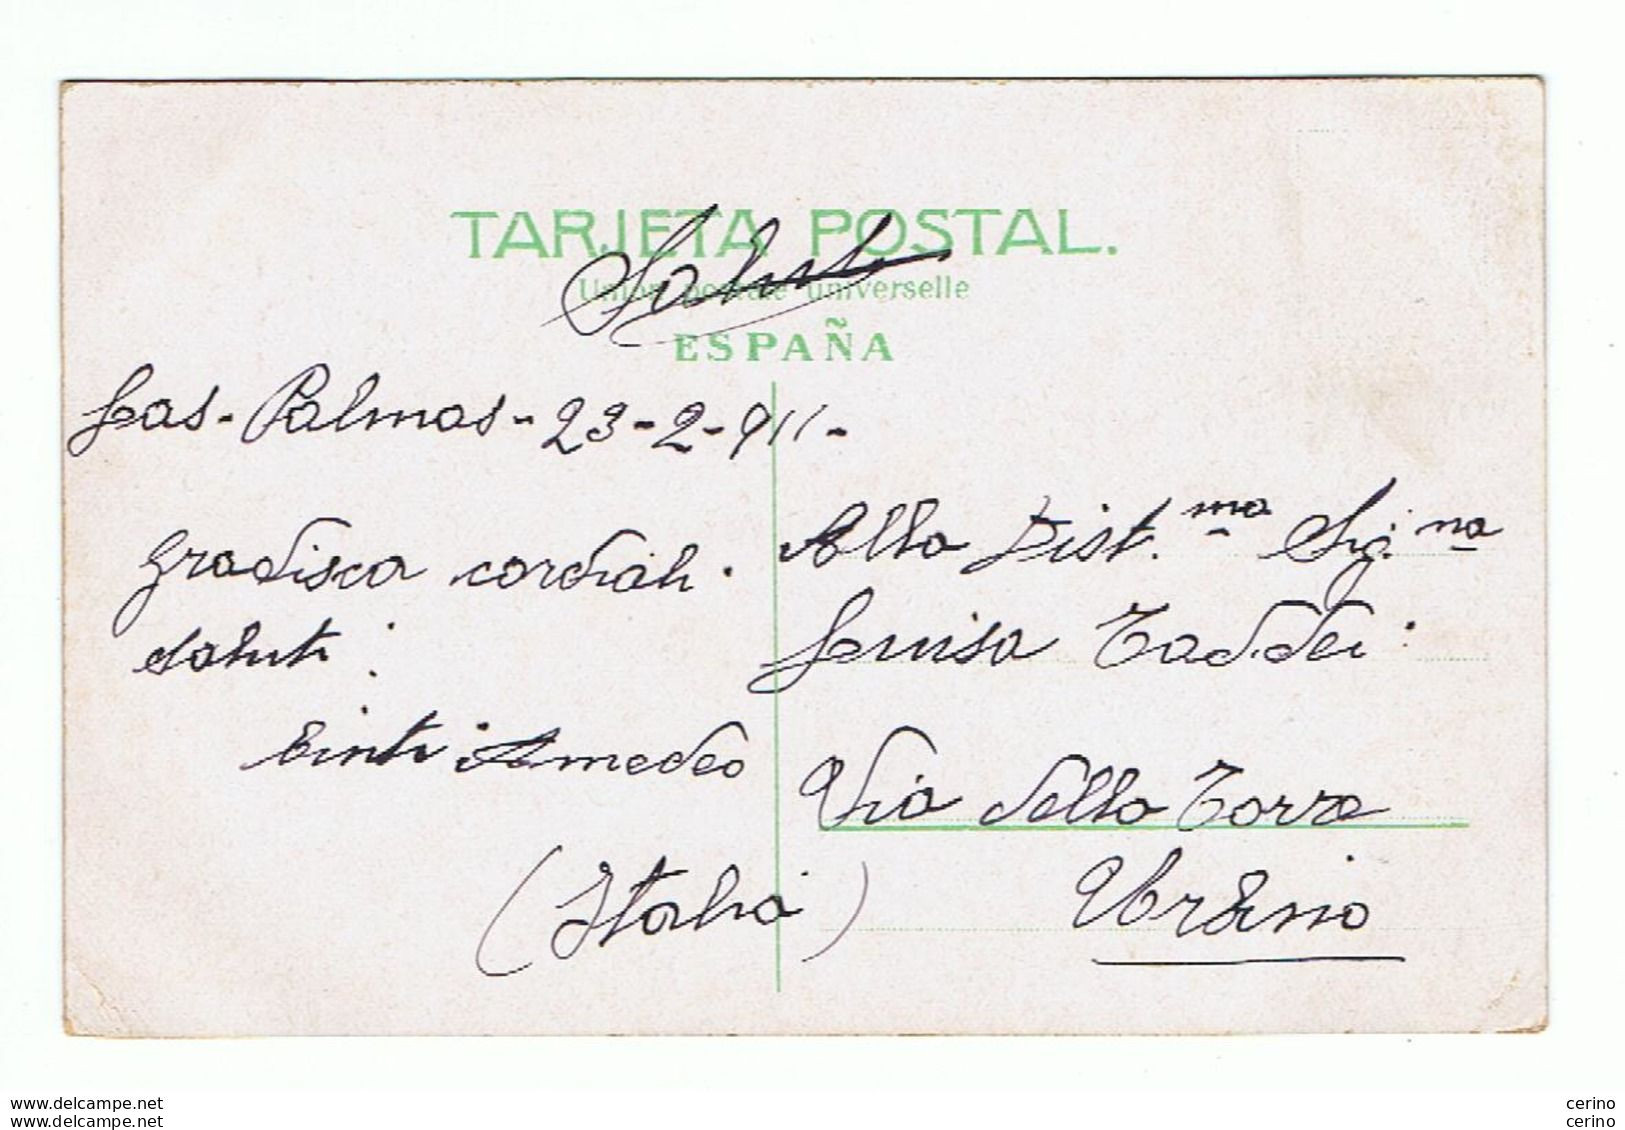 TARJETA POSTAL.
Saluti
Union postale universelle
ESPAÑA
Las-Palmas-23-2-911-
Gradisca cordiali
saluti
Tinti Amedeo
Alla Dist.ma Sig.na
Luisa Taddei
Via della Torre
Urbino
(Italia)
www.delcampe.net
www.delcampe.net
cerino
cerino